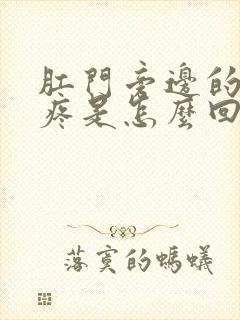 肛門旁邊的
疼是怎麼回
落寞的螞蟻